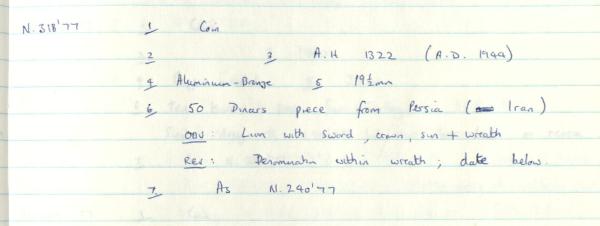 N. 318'77 1 Coin
2 3 A.H 1322 (A.D. 1944)
4 Aluminium-Bronze 5 19½mm
6 50 Dinars piece from Persia ( Iran)
OBV: Lion with sword, crown, sun + wreath
REV: Denomination within wreath; date below.
7. As N.240'77